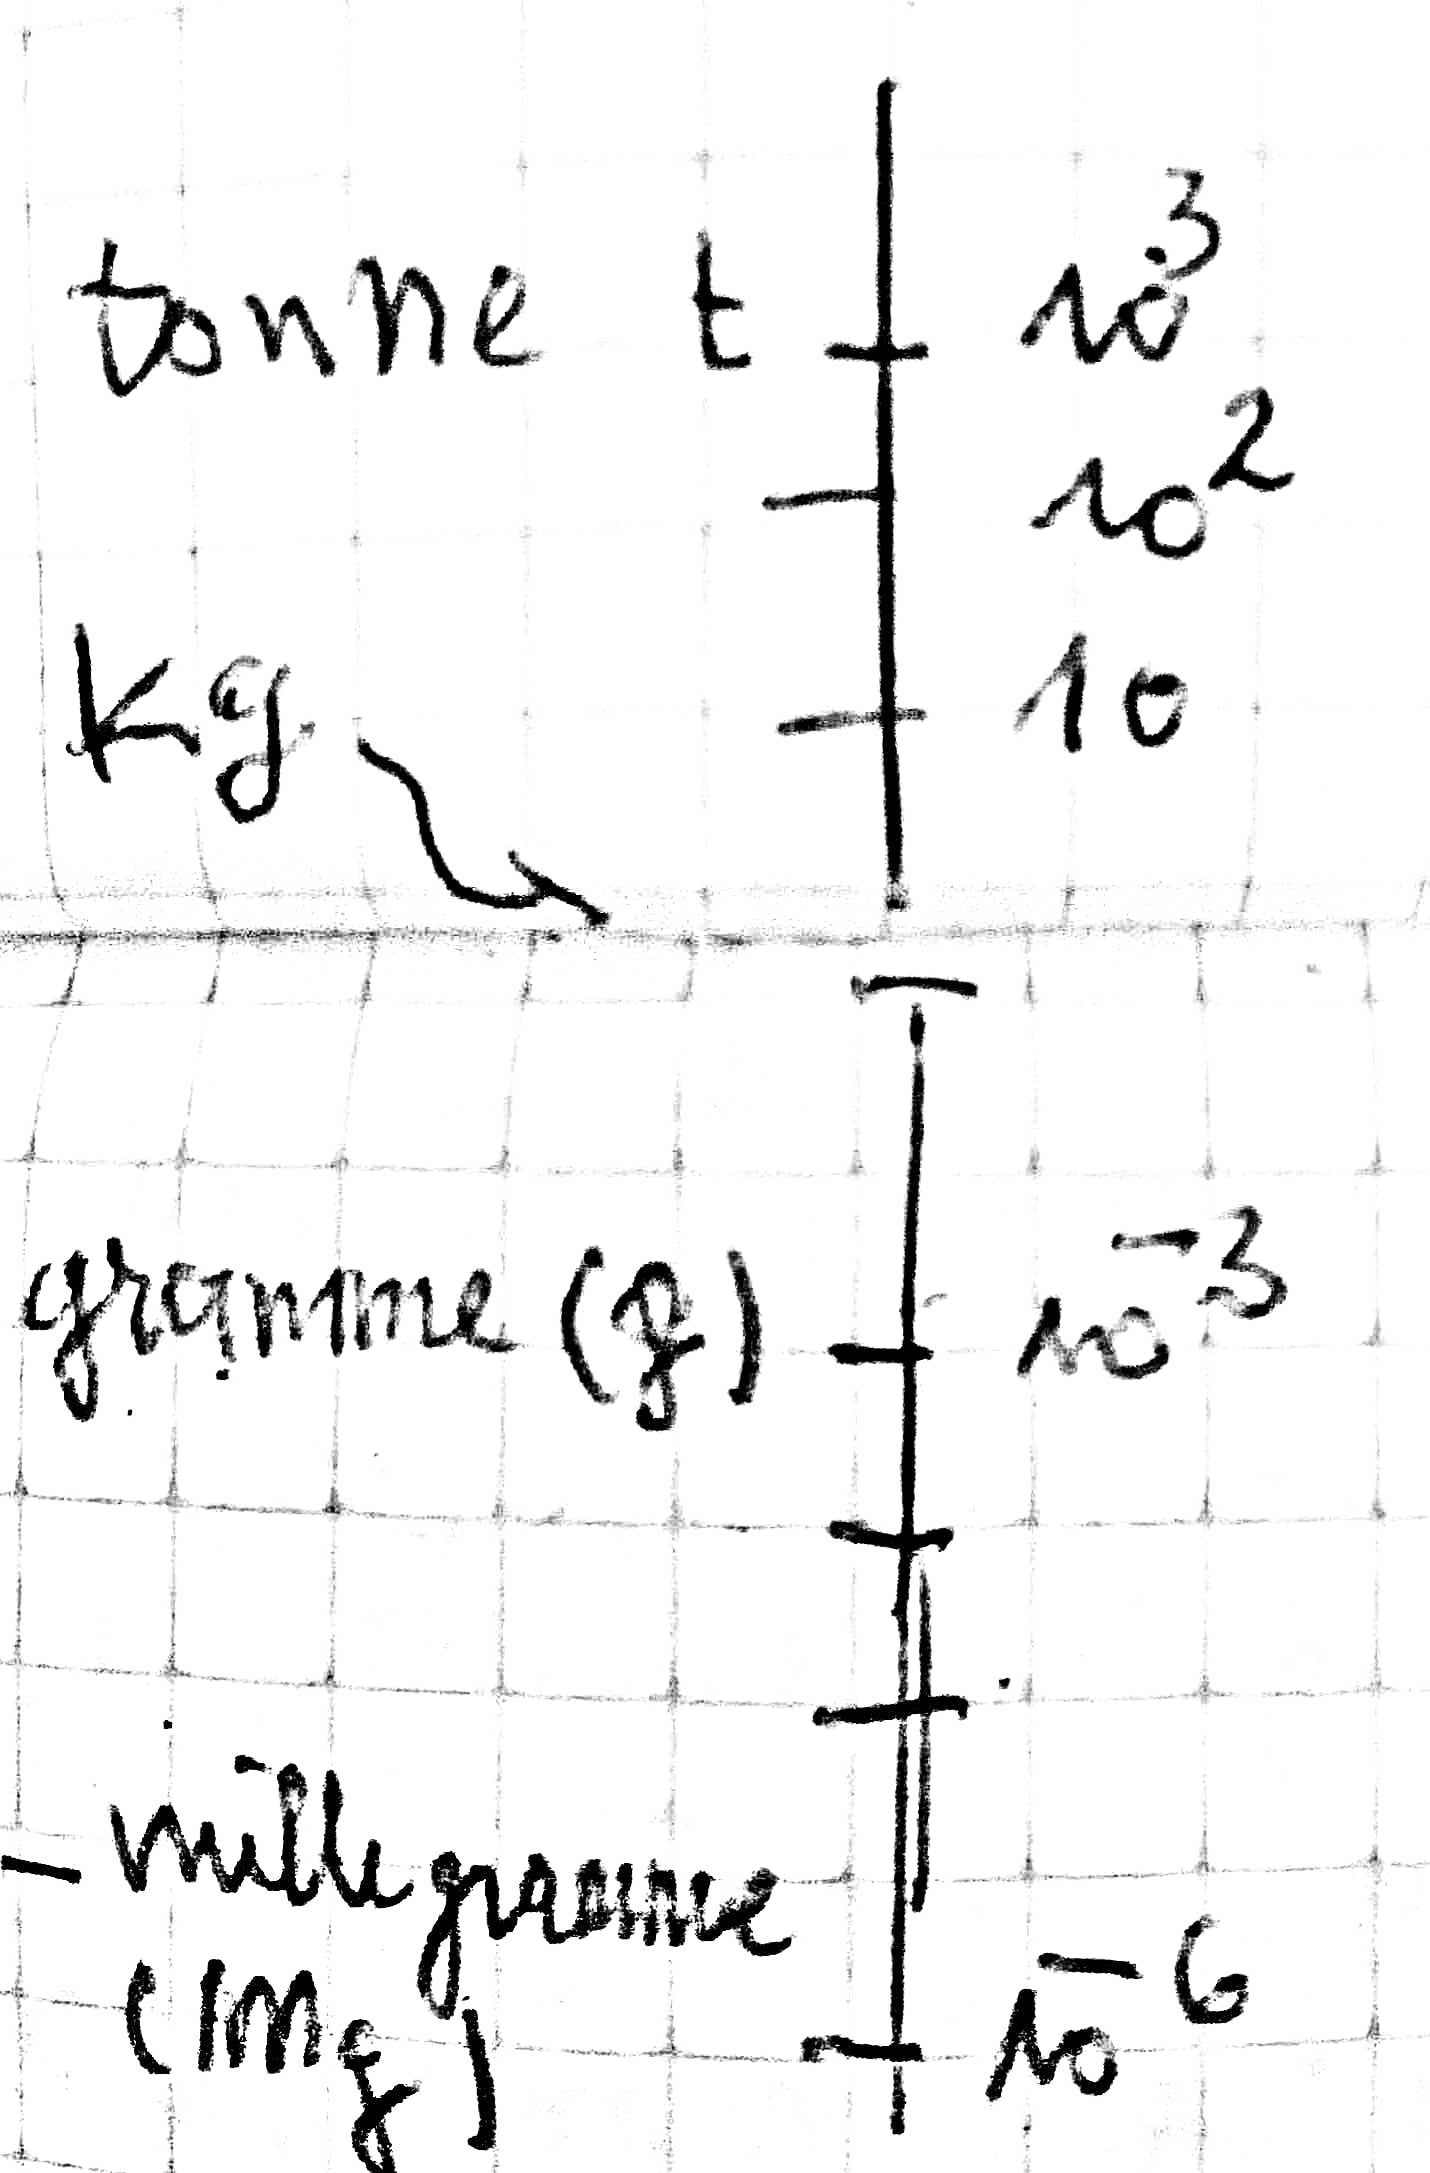 tonne t 10³
10²
10
Kg
gramme (g) 10⁻³
- millegramme
(mg) 10⁻⁶